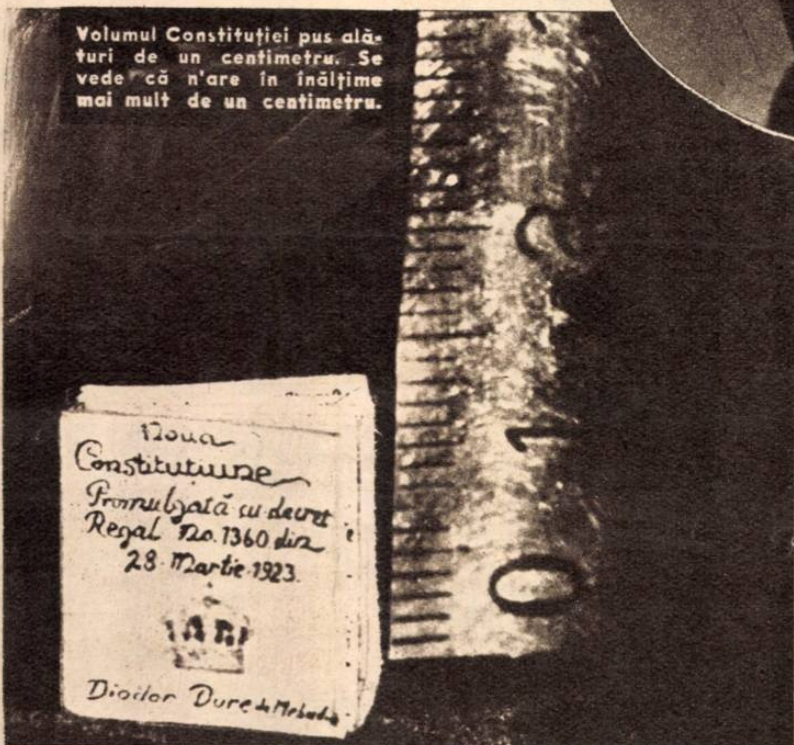 Volumul Constituției pus ală-
turi de un centimetru. Se
vede că n'are în înălțime
mai mult de un centimetru.
2
1
0
Noua
Constituțiune
Promulgată cu decret
Regal No. 1360 din
28 Martie 1923.